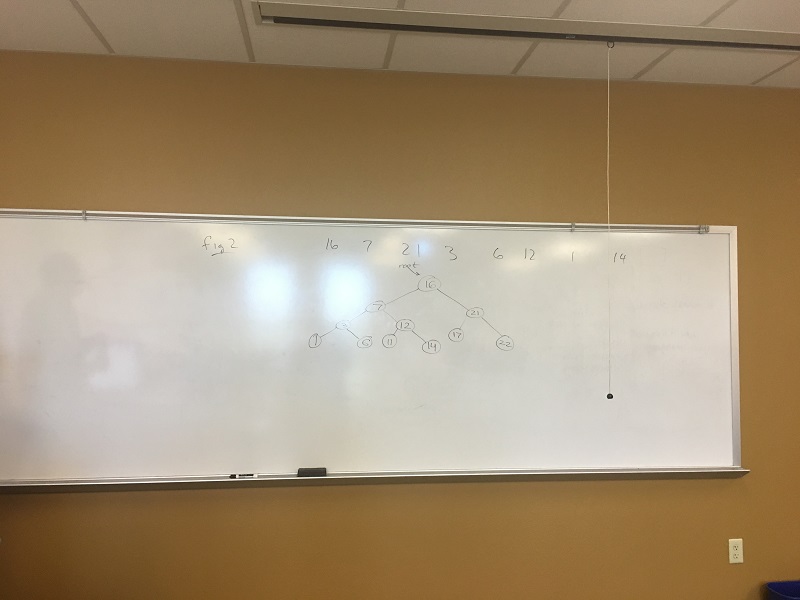 fig 2 16 7 21 3 6 12 1 14
root
16
7 21
3 12 17
1 6 11 14 22